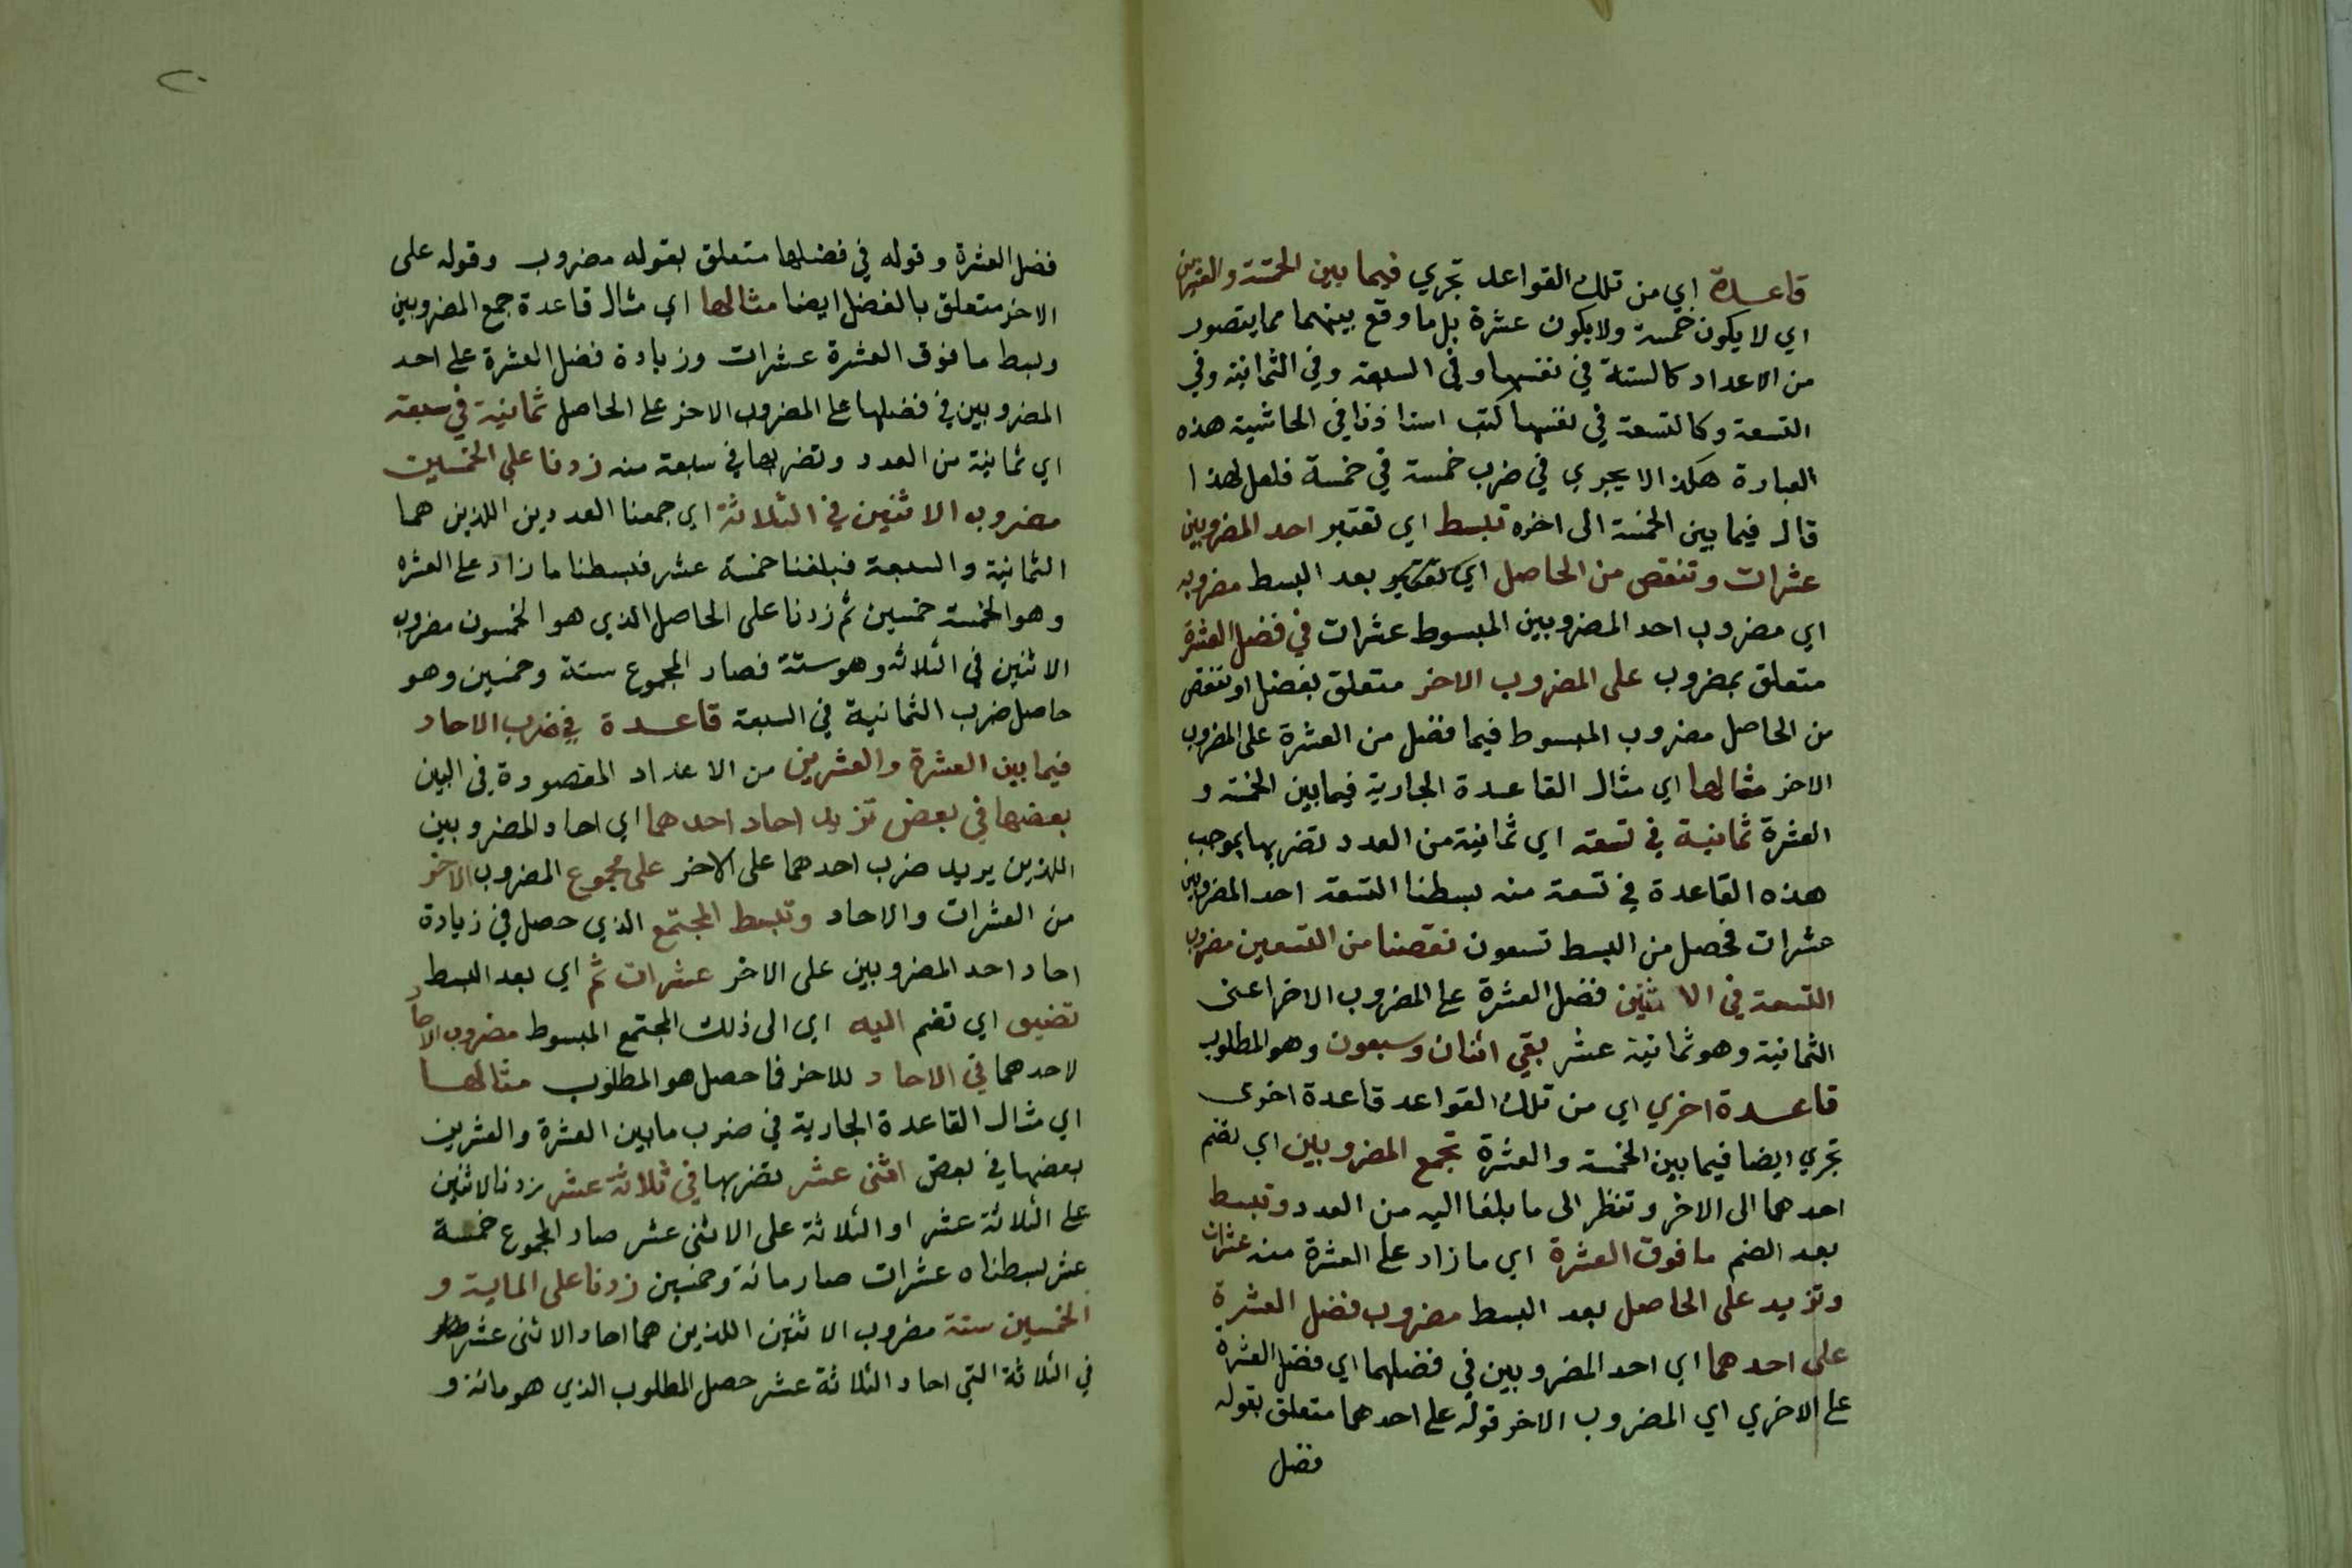 قاعدة اي من تلك القواعد تجري فيما بين الخمسة والعشرين
اي لا يكون خمسة ولا يكون عشرة بل ما وقع بينهما مما يتصور
من الاعداد كالستة في نفسها وفي السبعة وفي الثمانية وفي
التسعة وكالتسعة في نفسها كتب استاذنا في الحاشية هذه
العبارة هكذا لا يجري في ضرب خمسة في خمسة فلعل لهذا
قال فيما بين الخمسة الى اخره تبسط اي تعتبر احد المضروبين
عشرات وتنقص من الحاصل اي بعد البسط مضروبه
اي مضروب احد المضروبين المبسوط عشرات في فضل العشرة
متعلق بمضروب على المضروب الاخر متعلق بفضل او تنقص
من الحاصل مضروب المبسوط فيما فضل من العشرة على المضروب
الاخر مثالها اي مثال القاعدة الجارية فيما بين الخمسة و
العشرة ثمانية في تسعة اي ثمانية من العدد تضربها بموجب
هذه القاعدة في تسعة منه بسطنا التسعة احد المضروبين
عشرات فحصل من البسط تسعون نقصنا من التسعين مضروب
التسعة في الاثنين فضل العشرة على المضروب الاخر اعنى
الثمانية وهو ثمانية عشر بقي اثنان وسبعون وهو المطلوب
قاعدة اخري اي من تلك القواعد قاعدة اخرى
تجري ايضا فيما بين الخمسة والعشرة تجمع المضروبين اي تضم
احدهما الى الاخر وتنظر الى ما بلغا اليه من العدد وتبسط
بعد الضم ما فوق العشرة اي ما زاد على العشرة منه عشرات
وتزيد على الحاصل بعد البسط مضروب فضل العشرة
على احدهما اي احد المضروبين في فضلهما اي فضل العشرة
على الاخري اي المضروب الاخر قوله على احدهما متعلق بقوله
فضل
٢٠
فضل العشرة وقوله في فضلها متعلق بقوله مضروب وقوله على
الاخر متعلق بالفضل ايضا مثالها اي مثال قاعدة جمع المضروبين
وبسط ما فوق العشرة عشرات وزيادة فضل العشرة على احد
المضروبين في فضلها على المضروب الاخر على الحاصل ثمانية في سبعة
اي ثمانية من العدد وتضربها في سبعة منه زدنا على الخمسين
مضروب الاثنين في الثلاثة اي جمعنا العددين اللذين هما
الثمانية والسبعة فبلغنا خمسة عشر فبسطنا ما زاد على العشره
وهو الخمسة خمسين ثم زدنا على الحاصل الذي هو الخمسون مضروب
الاثنين في الثلاثه وهو ستة فصار المجموع ستة وخمسين وهو
حاصل ضرب الثمانية في السبعة قاعدة في ضرب الاحاد
فيما بين العشرة والعشرين من الاعداد المقصودة في البين
بعضها في بعض تزيد احاد احدهما اي احاد المضروبين
اللذين يريد ضرب احدهما على الاخر على مجموع المضروب الاخر
من العشرات والاحاد وتبسط المجتمع الذي حصل في زيادة
احاد احد المضروبين على الاخر عشرات ثم اي بعد البسط
تضيف اي تضم اليه اي الى ذلك المجتمع المبسوط مضروب الاحاد
لاحدهما في الاحاد للاخر فما حصل هو المطلوب مثالها
اي مثال القاعدة الجارية في ضرب ما بين العشرة والعشرين
بعضها في بعض اثنى عشر تضربها في ثلاثة عشر زدنا الاثنين
على الثلاثة عشر او الثلاثة على الاثنى عشر صار المجموع خمسة
عشر بسطناه عشرات صار مائة وخمسين زدنا على الماية و
الخمسين ستة مضروب الاثنين اللذين هما احاد الاثنى عشر
في الثلاثة التي احاد الثلاثة عشر حصل المطلوب الذي هو مائة و